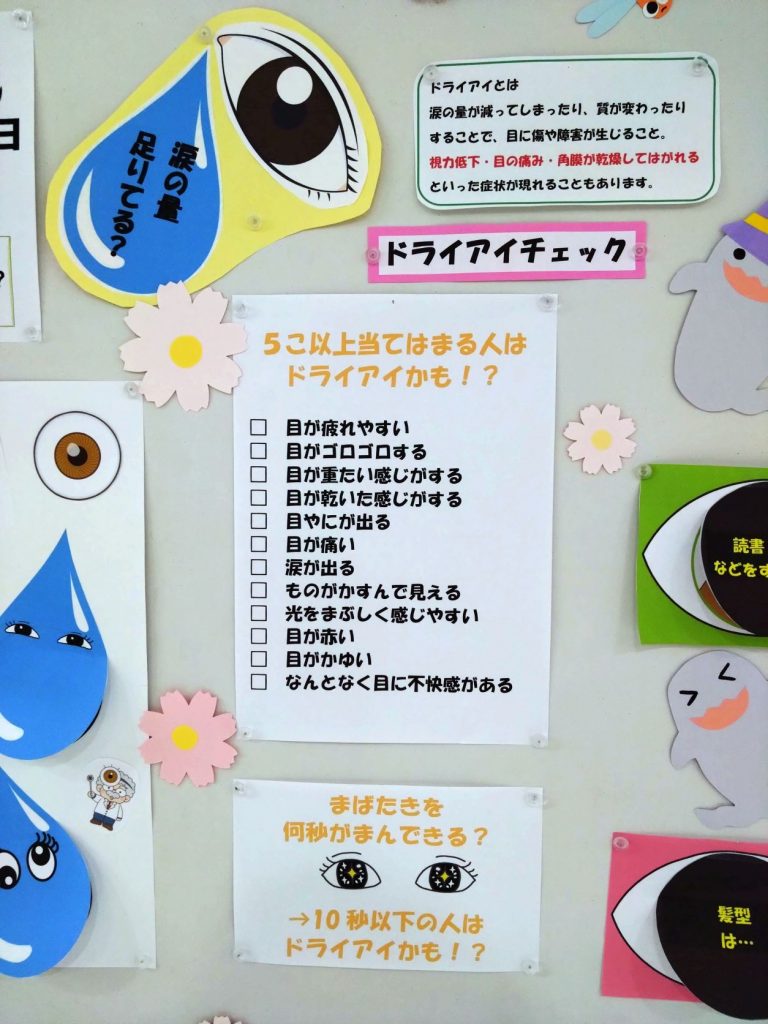 涙の量
足りてる?
ドライアイとは
涙の量が減ってしまったり、質が変わったり
することで、目に傷や障害が生じること。
視力低下・目の痛み・角膜が乾燥してはがれる
といった症状が現れることもあります。
ドライアイチェック
5こ以上当てはまる人は
ドライアイかも!?
□ 目が疲れやすい
□ 目がゴロゴロする
□ 目が重たい感じがする
□ 目が乾いた感じがする
□ 目やにが出る
□ 目が痛い
□ 涙が出る
□ ものがかすんで見える
□ 光をまぶしく感じやすい
□ 目が赤い
□ 目がかゆい
□ なんとなく目に不快感がある
読書
などをす
まばたきを
何秒がまんできる?
→10秒以下の人は
ドライアイかも!?
髪型
は…